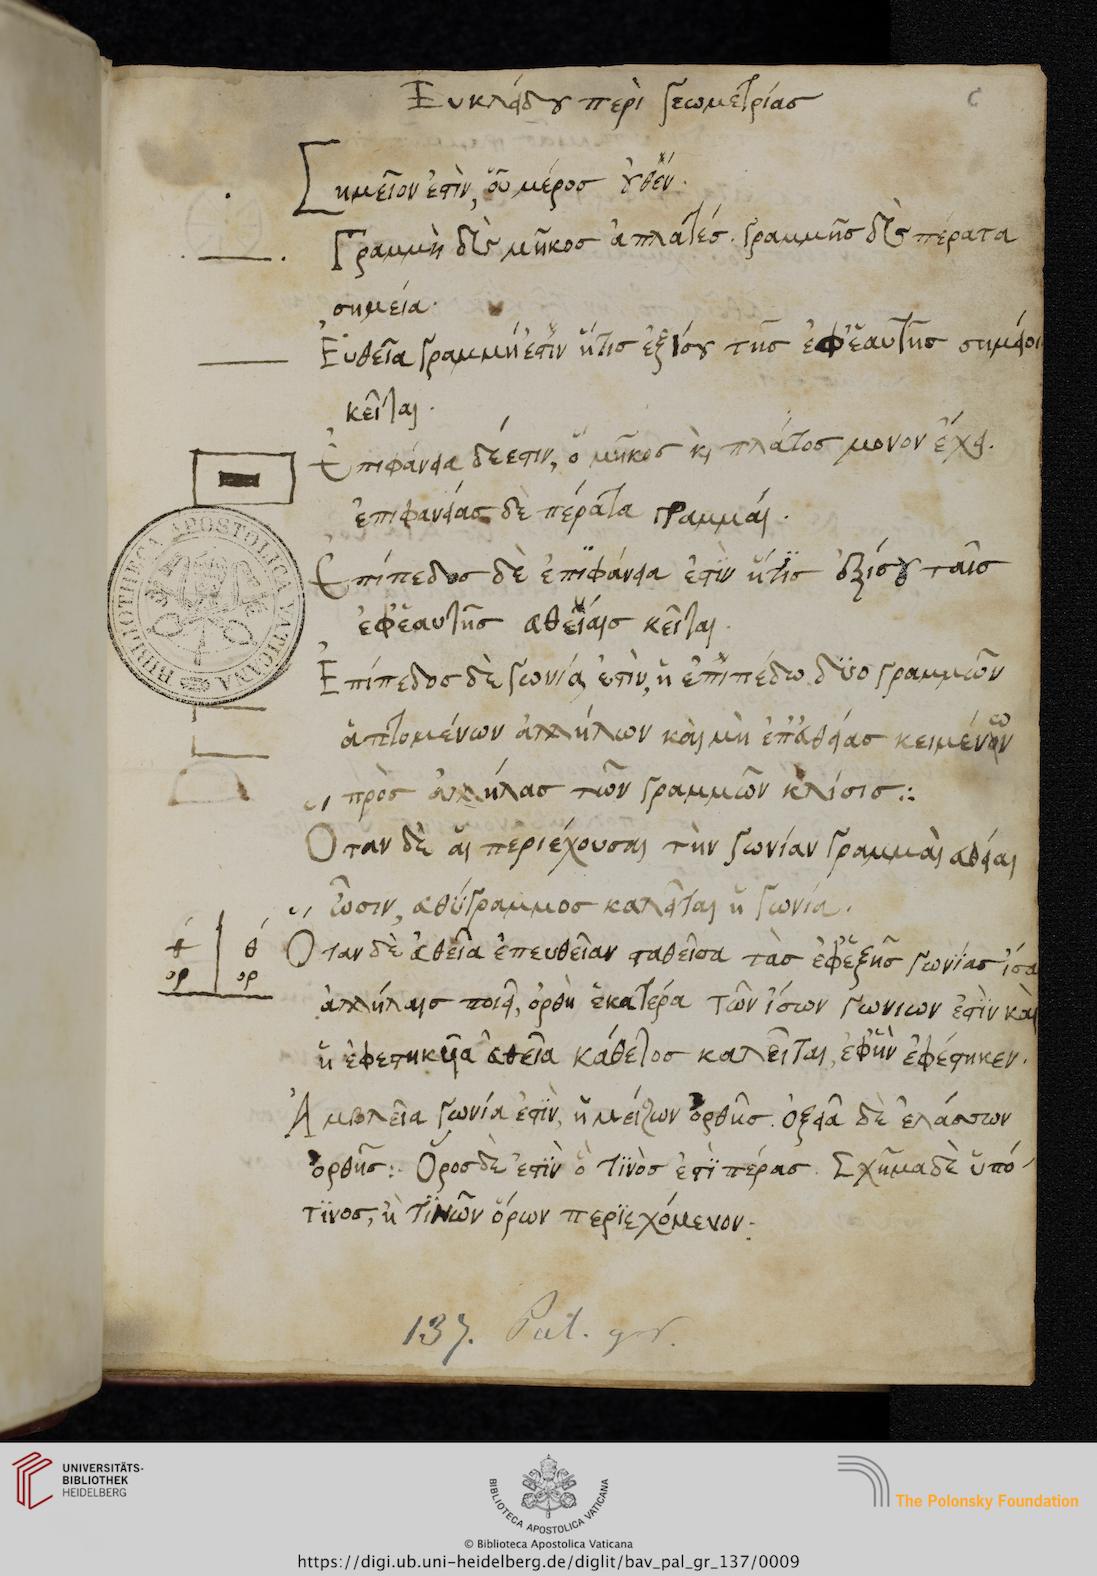 Εὐκλείδου περὶ γεωμετρίασ
Σημεῖον ἐστὶν, οὗ μέροσ οὐθὲν.
Γραμμὴ δὲ μῆκοσ ἀπλατέσ. γραμμῆσ δὲ πέρατα
σημεία.
Εὐθεῖα γραμμή ἐστὶν ἥτισ ἐξίσου τῆσ ἐφ ἑαυτῆσ σημείοισ
κεῖται.
Ἐπιφάνεια δέ ἐστιν, ὃ μῆκοσ καὶ πλάτοσ μονον ἔχει.
ἐπιφανείασ δὲ πέρατα γραμμαί.
Ἐπίπεδοσ δὲ ἐπϊφάνεια ἐστὶν ἥτϊσ ἐξίσου ταῖσ
ἐφ ἑαυτῆσ εὐθείαισ κεῖται.
Ἐπίπεδοσ δὲ γωνία ἐστὶν, ἡ ἐπϊπέδω δϋο γραμμῶν
ἁπτομένων ἀλλήλων καὶ μὴ ἐπ εὐθείασ κειμένων
πρὸσ ἀλλήλασ τῶν γραμμῶν κλίσισ:
Ὅταν δὲ αἱ περιέχουσαι τὴν γωνίαν γραμμαὶ εὐθείαι
ὦσιν, εὐθύγραμμοσ καλεῖται ἡ γωνία.
Ὅταν δὲ εὐθεῖα ἐπευθεῖαν σταθεῖσα τὰσ ἐφεξῆσ γωνϊασ ἴσασ
ἀλλήλαισ ποιεῖ, ὀρθὴ ἑκατέρα τῶν ἴσων γωνιων ἐστὶν καὶ
ἡ ἐφεστηκυῖα εὐθεῖα κάθετοσ καλεῖται, ἐφ ἣν ἐφέστηκεν.
Ἀμβλεῖα γωνία ἐστϊν, ἡ μείζων ὀρθῆσ. ὀξεῖα δὲ ἐλάσσων
ὀρθῆσ: Ὅροσ δὲ ἐστϊν ὅ τϊνὸσ ἐστὶ πέρασ. Σχῆμα δὲ ὑπό
τϊνοσ, ἤ τϊνῶν ὅρων περϊεχόμενον:
θ
θ
ορ
ορ
BIBLIOTHECA APOSTOLICA VATICANA
137. Pal. gr.
UNIVERSITÄTS-
BIBLIOTHEK
HEIDELBERG
BIBLIOTECA APOSTOLICA VATICANA
The Polonsky Foundation
© Biblioteca Apostolica Vaticana
https://digi.ub.uni-heidelberg.de/diglit/bav_pal_gr_137/0009